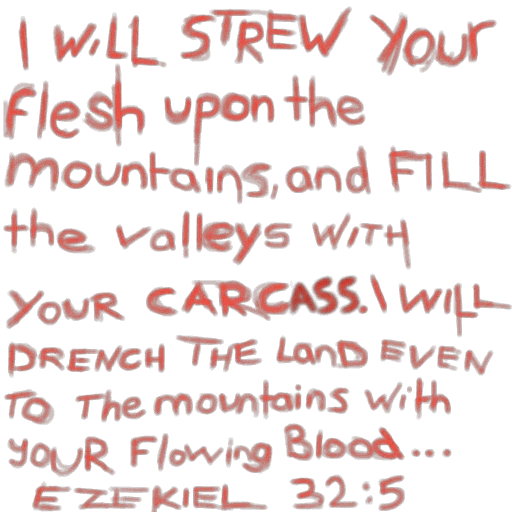 I WiLL STREW Your
flesh upon the
mountains, and FILL
the valleys WITH
YOUR CARCASS. I WILL
DRENCH THE LanD EVEN
TO The mountains with
YOUR Flowing Blood...
EZEKIEL 32:5